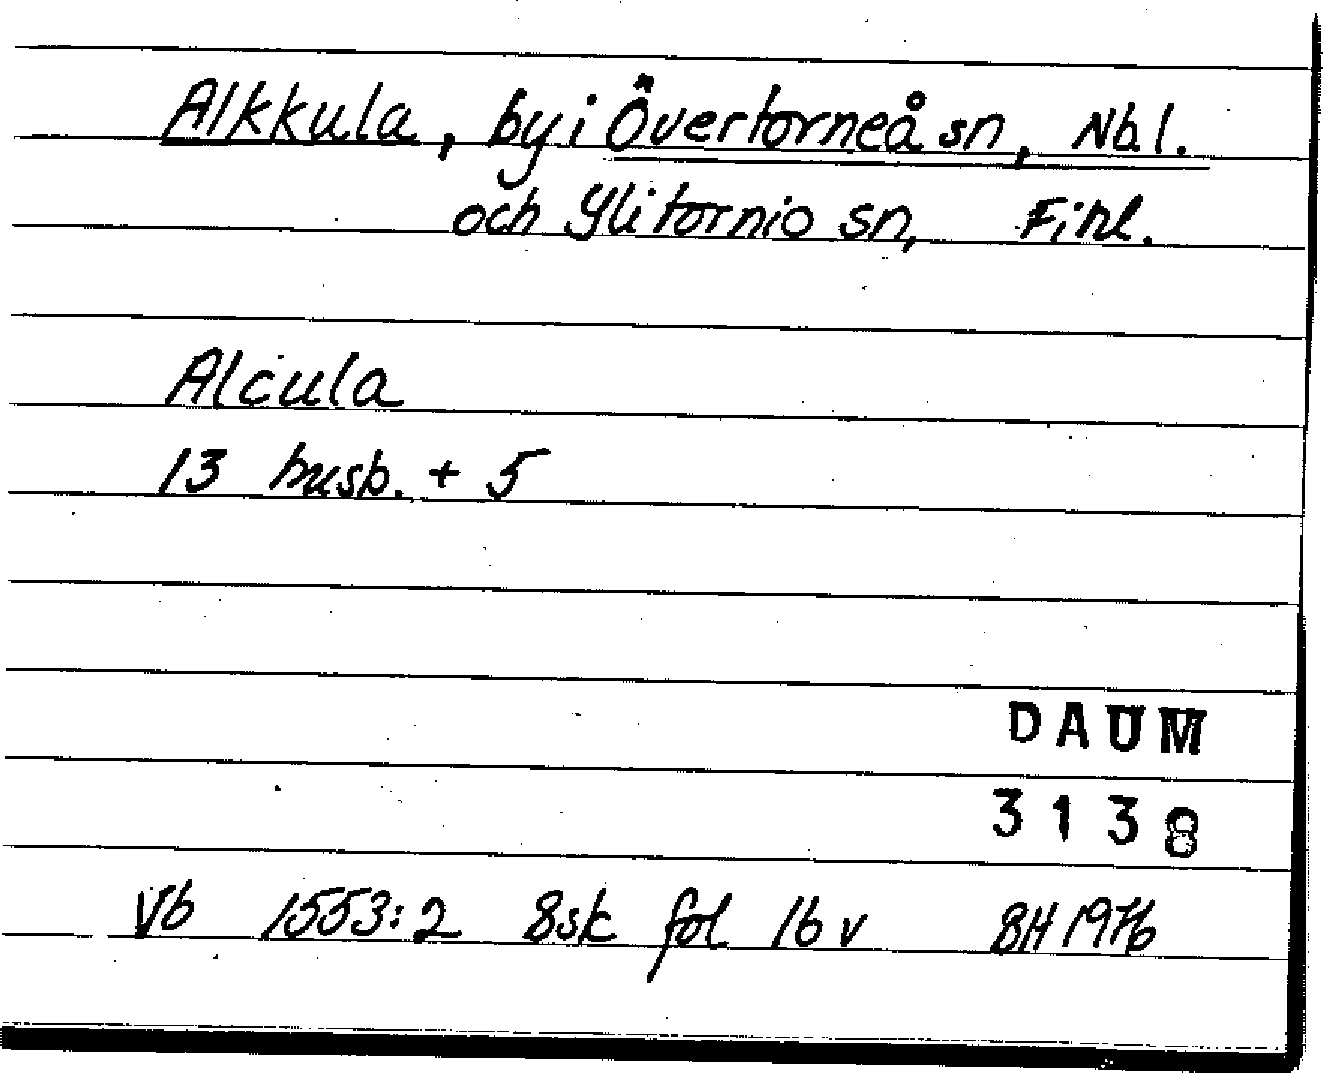 Alkkula, by i Övertorneå sn, Nbl.
och Ylitornio sn, Finl.
Alcula
13 husb. + 5
DAUM
3138
Vb 1553:2 8sk fol 16 v BH 1976